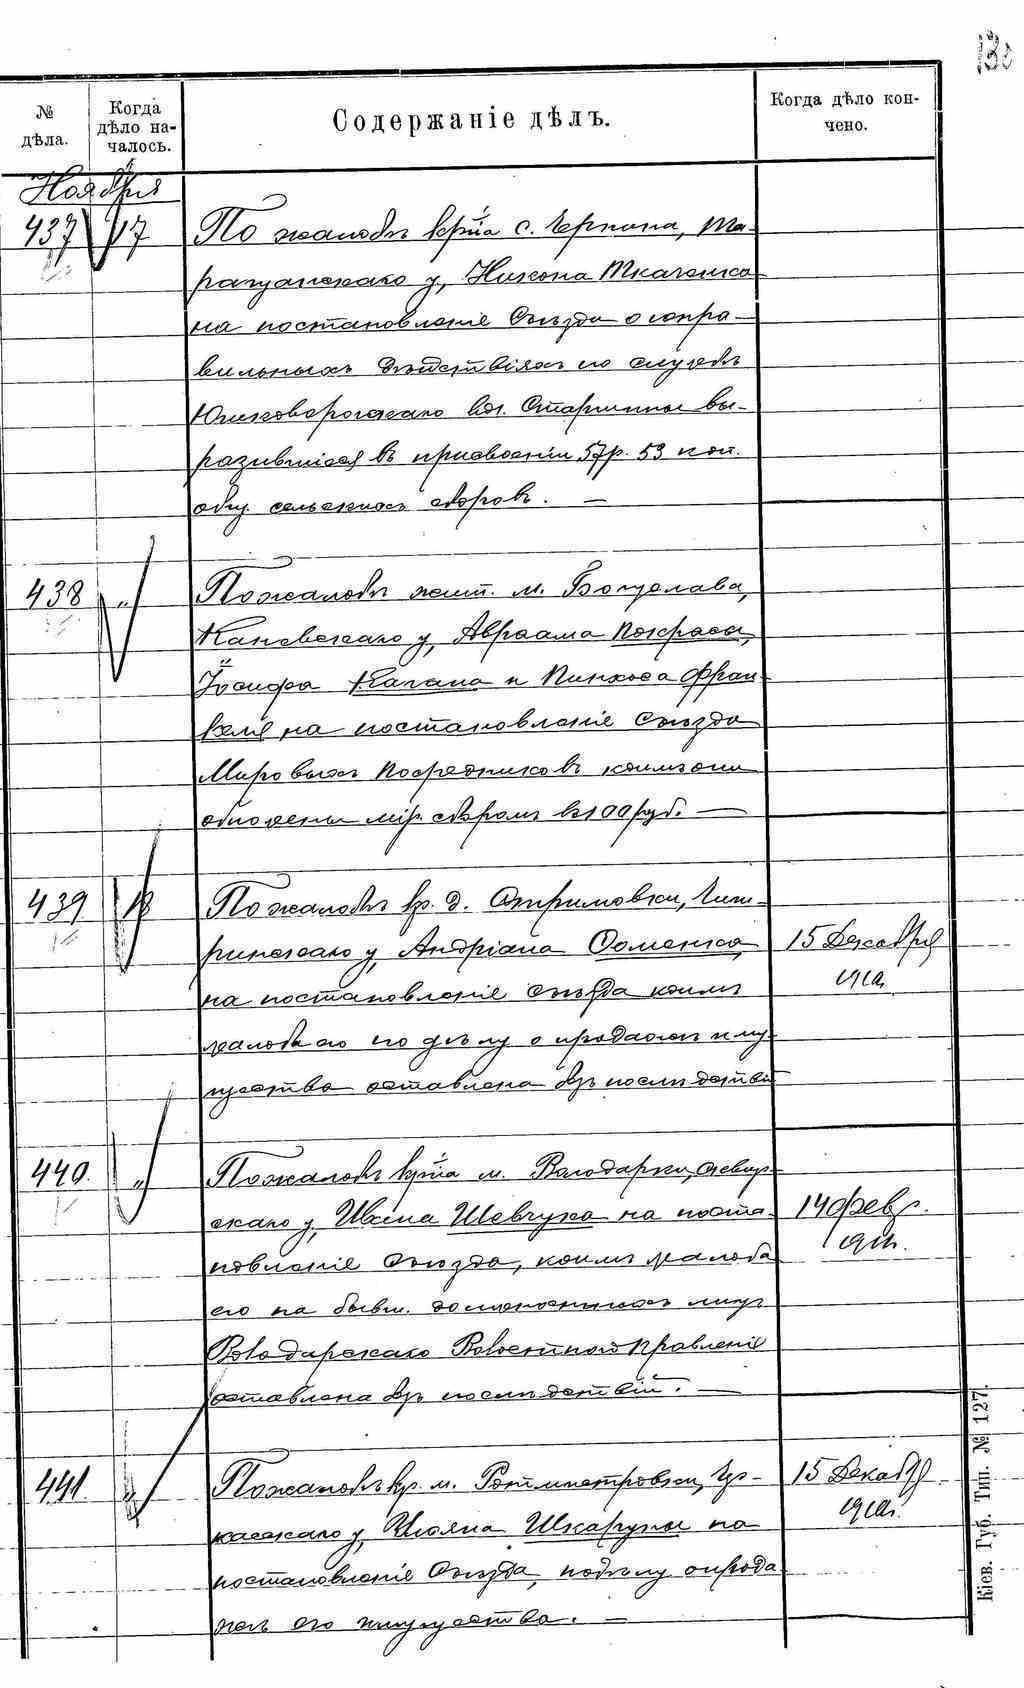 № дѣла.
Когда дѣло началось.
Содержаніе дѣлъ.
Когда дѣло кончено.
Ноября
437 17 По жалобѣ кр-на с. Черкина, Та-
ращанскаго у, Никона Ткаченка
на постановленіе Съѣзда о неправильныхъ
дѣйствіяхъ по службѣ
вол. Старшины вы-
разившіяся въ присвоеніи 57р. 53 коп.
общ. сельскихъ сборовъ. —
438 „ По жалобѣ жит. м. Богуслава,
Каневскаго у, Авраама Покраса,
Іосифа Кагана и Пинхоса Френ-
келя на постановленіе Съѣзда
Мировыхъ Посредниковъ коимъ они
обложены мір. сборомъ въ 100 руб. —
439 18 По жалобѣ кр. д. Чиги-
ринскаго у, Андріана Фоменка,
на постановленіе Съѣзда коимъ
жалоба его по дѣлу о продажѣ иму-
щества оставлена безъ послѣдствій
15 Декабря
440. „ По жалобѣ кр-на м. Володарки, Сквир-
скаго у, Ивана Шевчука на поста-
новленіе Съѣзда, коимъ жалоба
его на бывш. должностныхъ лицъ
Володарскаго Волостного Правленія
оставлена безъ послѣдствій. —
14 февр.
441 „ По жалобѣ кр. м. Ротмистровки, Чер-
касскаго у, Ульяна Шкарупы на
постановленіе Съѣзда, по дѣлу о прода-
жѣ его имущества. —
15 Декабр
Кіев. Губ. Тип. № 127.